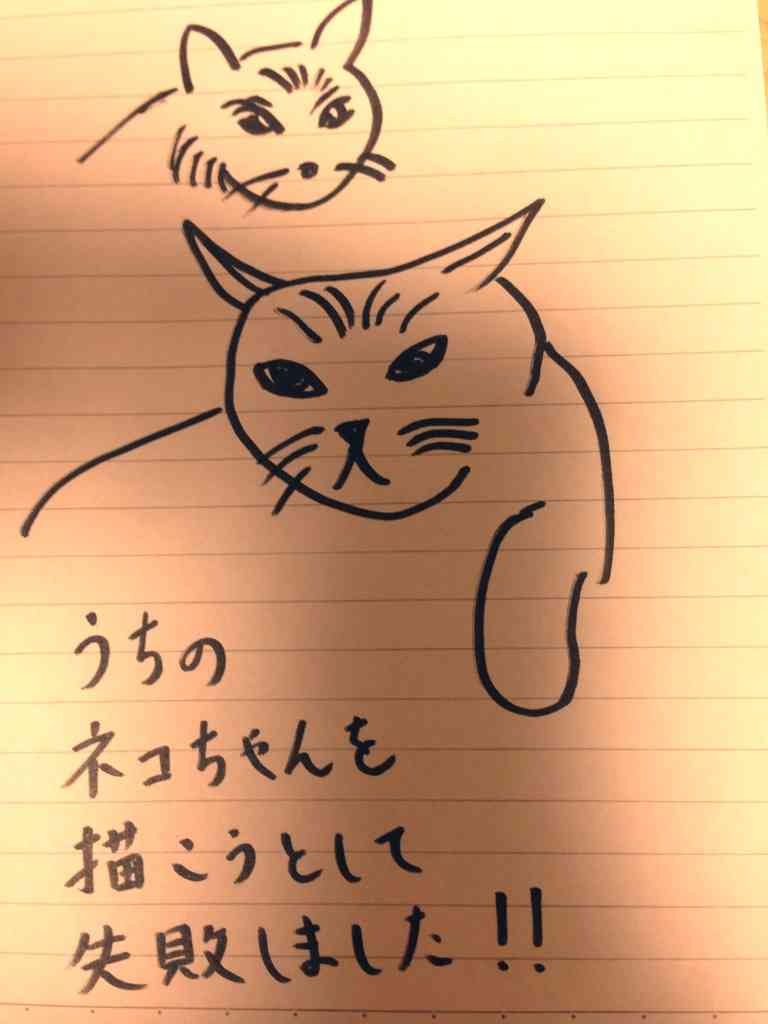 うちの
ネコちゃんを
描こうとして
失敗しました!!